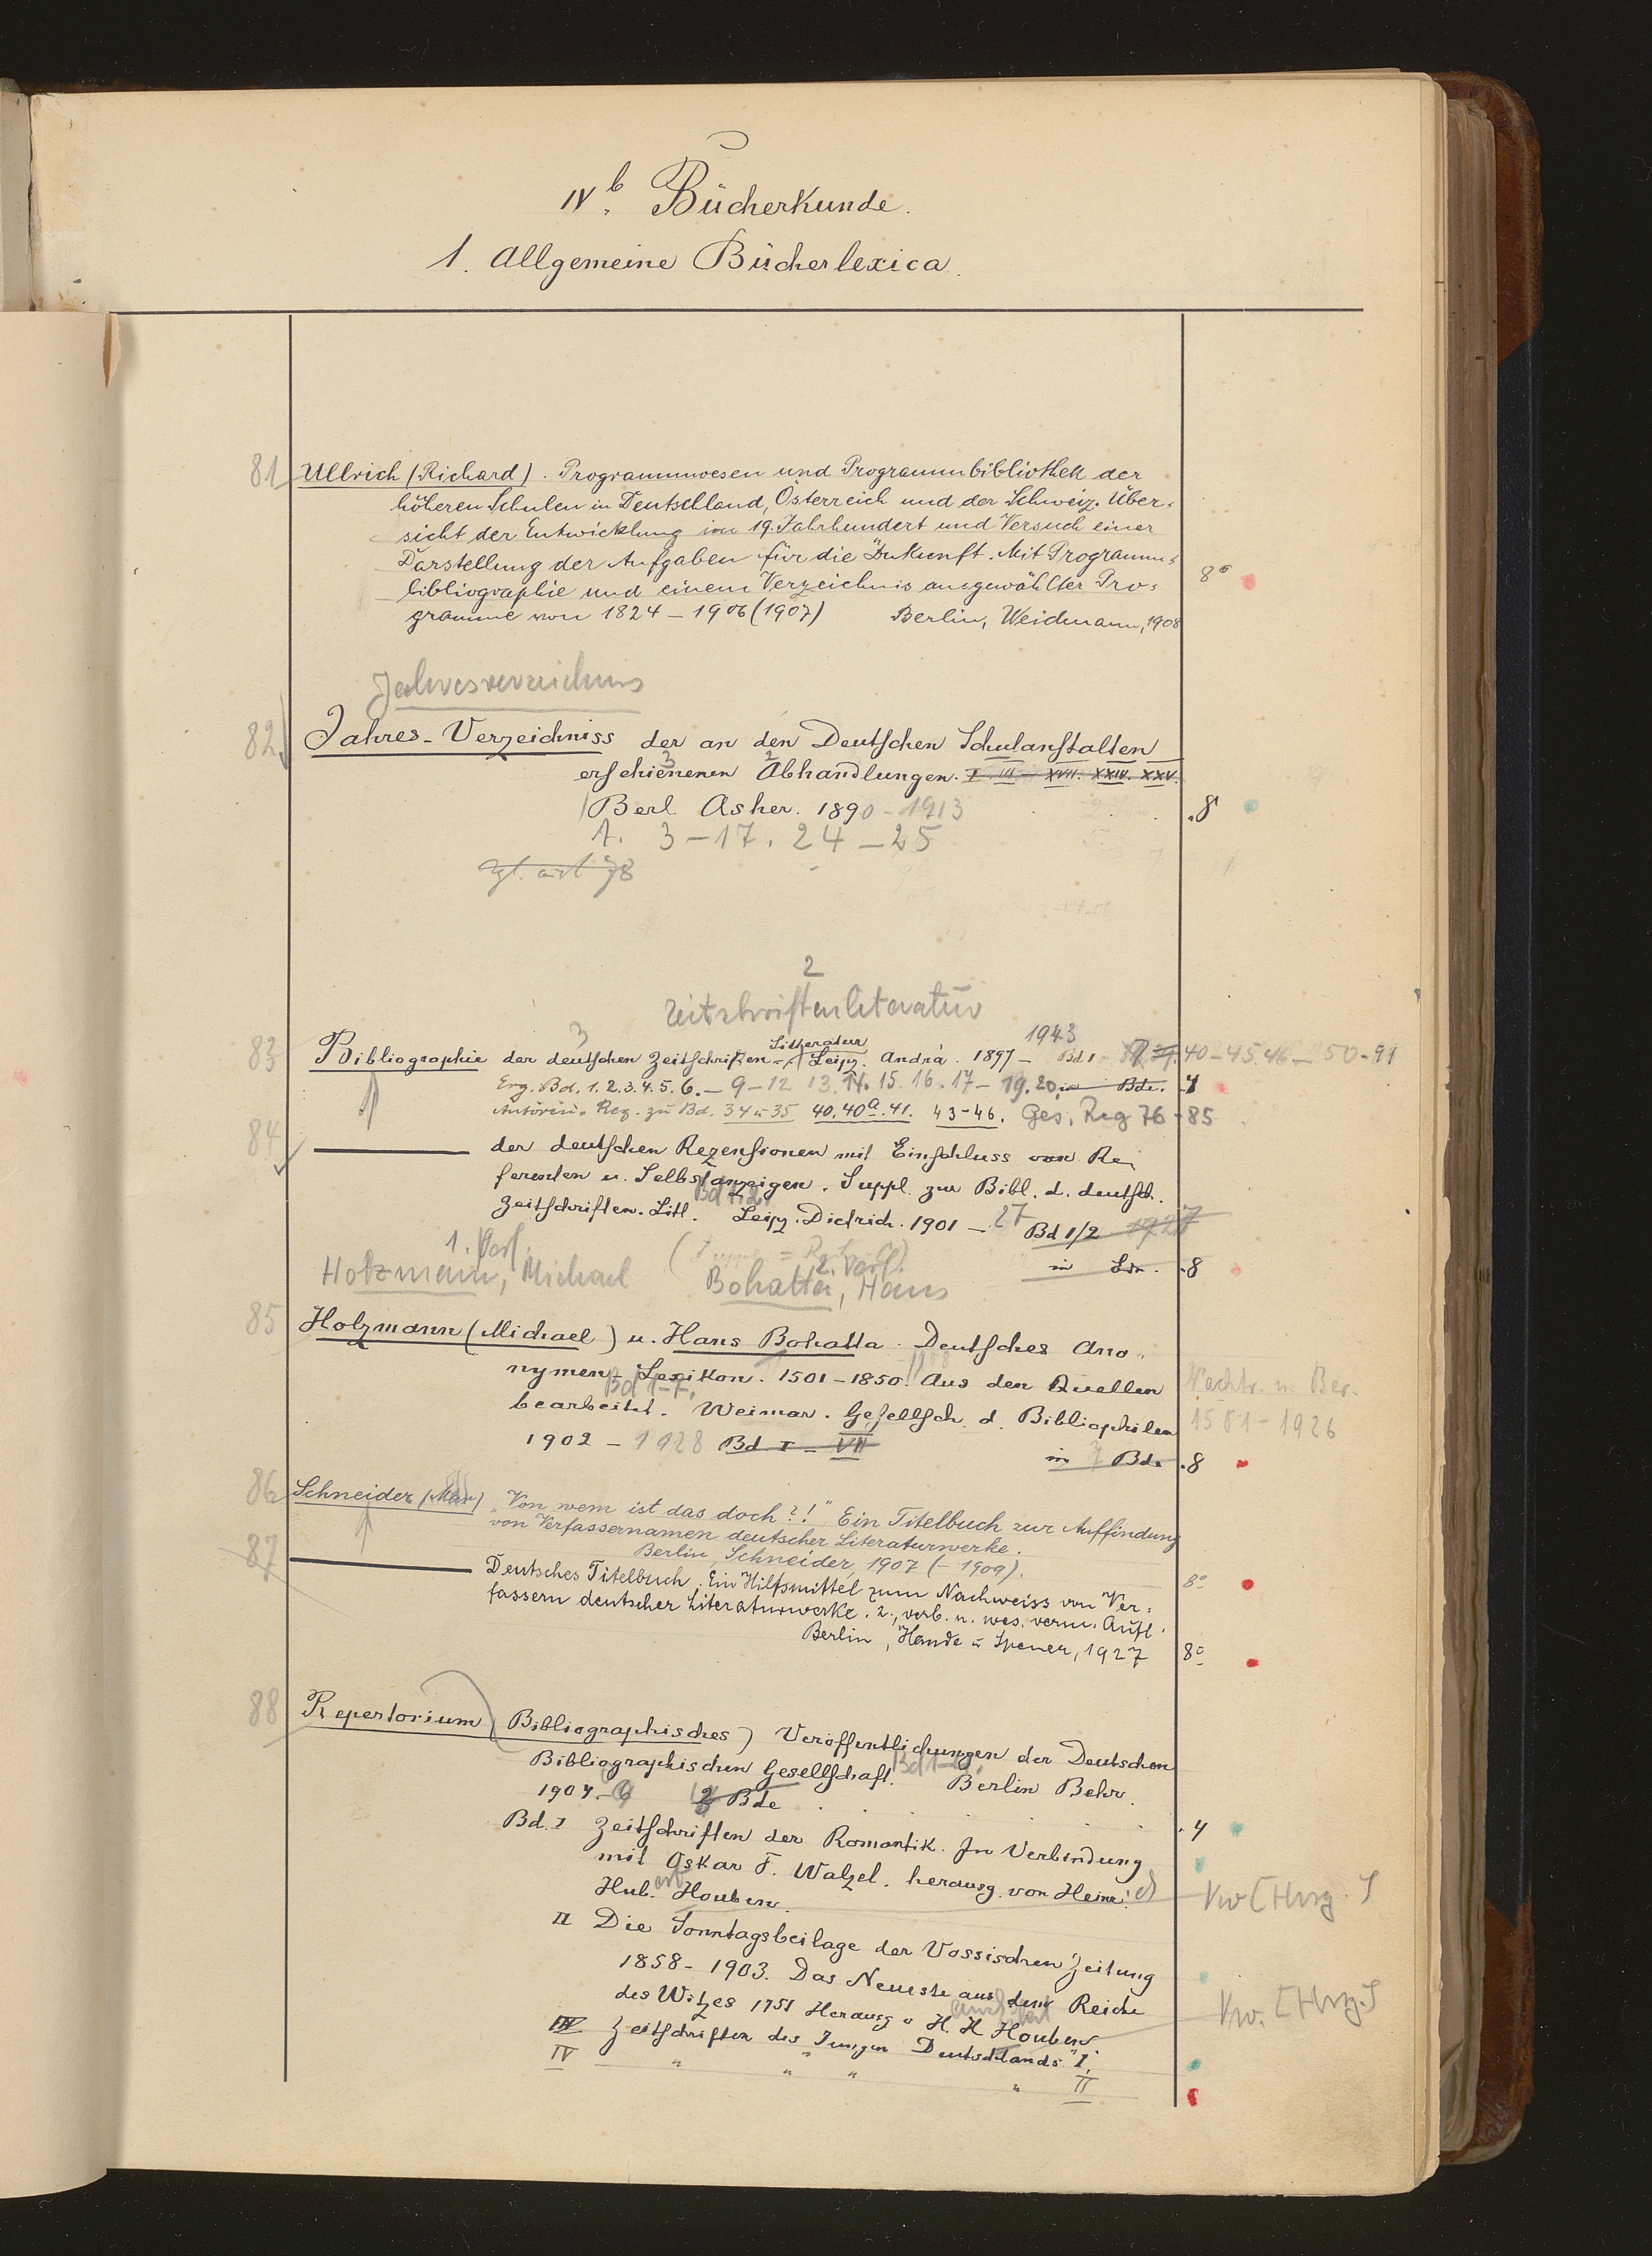 IVb. Bücherkunde.
1. Allgemeine Bücherlexica.
81 Ullrich (Richard). Programmwesen und Programmbibliothek der
höheren Schulen in Deutschland, Österreich und der Schweiz. Über-
sicht der Entwicklung im 19. Jahrhundert und Versuch einer
Darstellung der Aufgaben für die Zukunft. Mit Programm-
bibliographie und einem Verzeichnis ausgewählter Pro-
gramme von 1824 – 1906 (1907) Berlin, Weidmann, 1908 8°
Jahresverzeichnis
82. Jahres-Verzeichniss der an den Deutschen Schulanstalten
erschienenen Abhandlungen. I. III – XVII. XXIV. XXV.
Berl. Asher. 1890 - 1913 8
1. 3 – 17. 24 – 25
2
Zeitschriftenliteratur
83 Bibliographie der deutschen Zeitschriften-Litteratur Leipz. Andrä. 1897 – 1943 Bd. 1 40 – 45. 46 – 50 - 91
Erg. Bd. 1. 2. 3. 4. 5. 6. – 9 – 12 13. 14. 15. 16. 17 – 19. 20. in Bde. 4
Autoren-Reg. zu Bd. 34 u 35 40. 40a. 41. 43 - 46. Ges. Reg 76 - 85
84 der deutschen Rezensionen mit Einschluss von Re-
ferenten u. Selbstanzeigen. Suppl. zur Bibl. d. deutsch.
Zeitschriften. Litt. Leipz. Dietrich. 1901 – 27 Bd 1/2 1927
in Ldr. 8
1. Verf. 2. Verf.
Holzmann, Michael Bohatta, Hans
85 Holzmann (Michael) u. Hans Bohatta. Deutsches Ano-
nymen-Lexikon. 1501 – 1850. Aus den Quellen Nachtr. u. Ber.
bearbeitet. Bd 1-7. Weimar. Gesellsch. d. Bibliophilen 1501 - 1926
1902 – 1928 Bd I – VII
in 7 Bde 8
86 Schneider (Max) "Von wem ist das doch?!" Ein Titelbuch zur Auffindung
von Verfassernamen deutscher Literaturwerke.
Berlin, Schneider, 1907 (– 1909). 8°
87 Deutsches Titelbuch. Ein Hilfsmittel zum Nachweiss von Ver-
fassern deutscher Literaturwerke. 2., verb. u. wes. verm. Aufl.
Berlin, Haude u Spener, 1927 8°
88 Repertorium (Bibliographisches) Veröffentlichungen der Deutschen
Bibliographischen Gesellschaft. Berlin Behr.
1904. 2 Bde 4
Bd. I Zeitschriften der Romantik. In Verbindung
mit Oskar F. Walzel. herausg. von Heinr.
Hub. Houben. Vw [Hrsg.]
II Die Sonntagsbeilage der Vossischen Zeitung
1858 - 1903. Das Neueste aus dem Reiche
des Witzes 1751 Herausg v H. H Houben Vw. [Hrsg.]
III Zeitschriften des Jungen Deutschlands I.
IV " " " " II